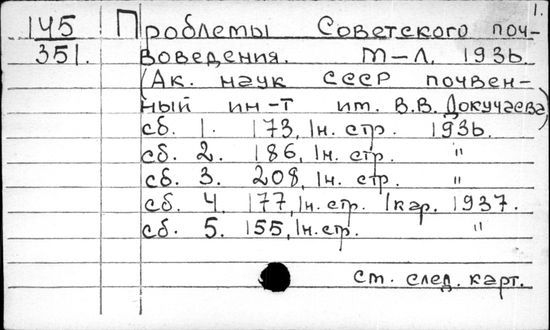 1.
145 Проблемы Советского поч-
351. воведения. М-Л. 1936.
(Ак. наук СССР почвен-
ный ин-т им. В.В. Докучаева)
сб. 1. 173, 1н. стр. 1936.
сб. 2. 186, 1н. стр. "
сб. 3. 208, 1н. стр. "
сб. 4. 177, 1н. стр. 1 кар. 1937.
сб. 5. 155, 1н. стр. "
см. след. карт.